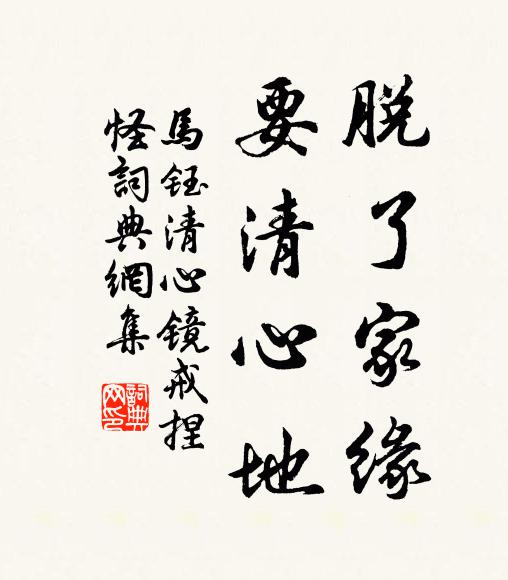 脱了家缘
要清心地
馬鈺清心镜戒捏
怪詞典網集
詞典网印